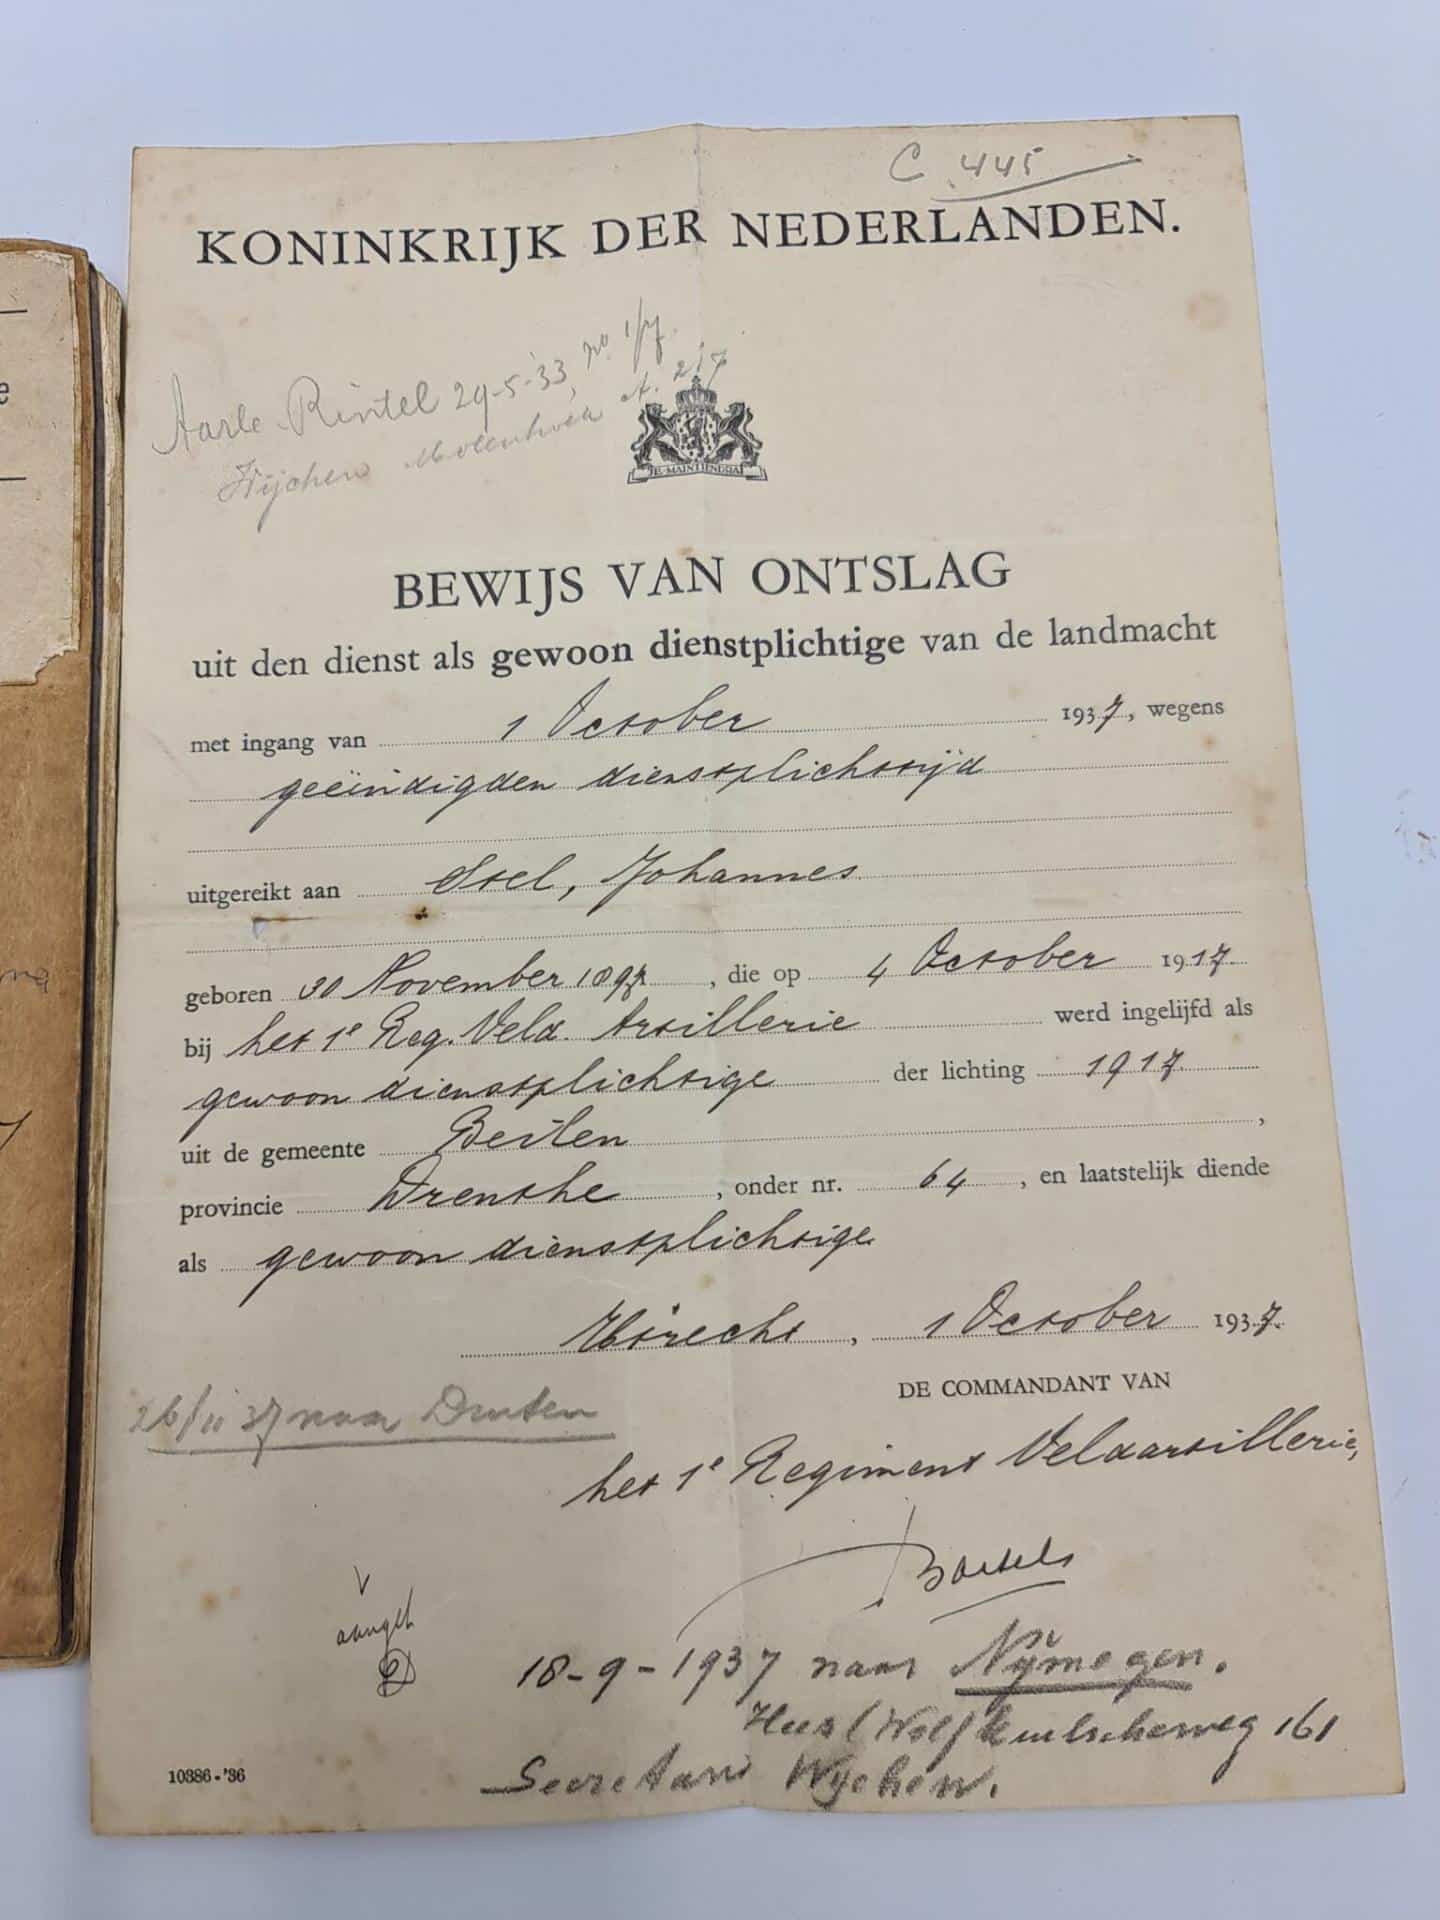 C 445
KONINKRIJK DER NEDERLANDEN.
Aarle Rixtel 29-5-'33, no. 1/7.
Wijchen Molenhoek A. 217
JE MAINTIENDRAI
BEWIJS VAN ONTSLAG
uit den dienst als gewoon dienstplichtige van de landmacht
met ingang van 1 October 1937, wegens
geëindigden dienstplichttijd
uitgereikt aan Stel, Johannes
geboren 30 November 1897, die op 4 October 1917
bij het 1e Reg. Veld. Artillerie werd ingelijfd als
gewoon dienstplichtige der lichting 1917
uit de gemeente Beilen,
provincie Drenthe, onder nr. 64, en laatstelijk diende
als gewoon dienstplichtige
Utrecht, 1 October 1937.
DE COMMANDANT VAN
26/11 37 naar Druten
het 1e Regiment Veldartillerie,
V
aanget
18-9-1937 naar Nijmegen.
161
Secretaris Wychen.
10386-'36
e